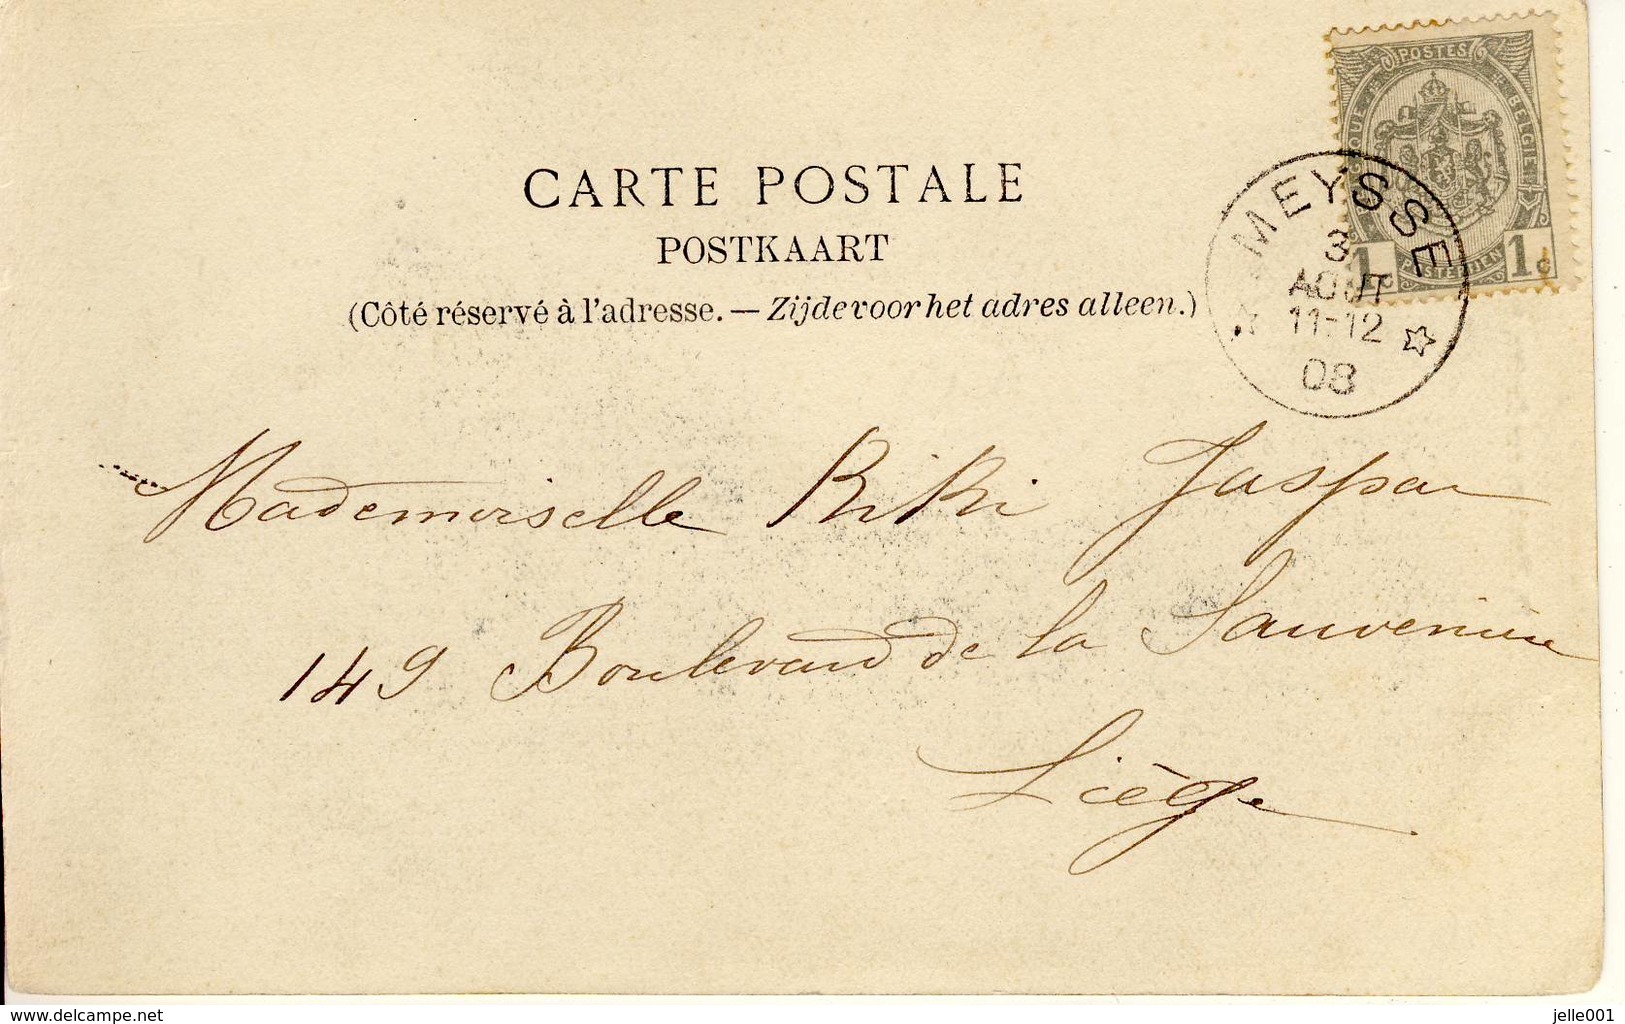 POSTES
BELGIE
1c 1c
POSTERIJEN
MEYSSE
3
AOUT
11-12
08
CARTE POSTALE
POSTKAART
(Côté réservé à l'adresse. — Zijde voor het adres alleen.)
Mademoiselle KiKi Jaspar
149 Boulevard de la Sauvenière
Liège
delcampe.net
jelle001